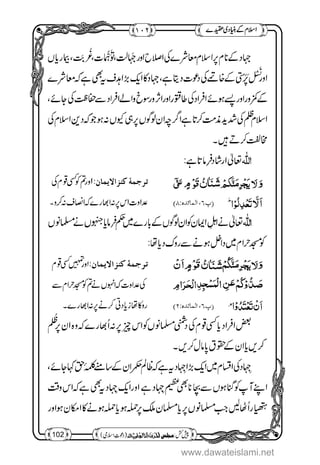 اسلام کے بنیادی عقیدے
۱۰۲
جہاد کے نام پر اسلام
اور نسل پرستی کے خاتمے کی دعوت دیتا ہے، جہادِ اسلام کا ایک بڑا ہدف یہ بھی ہے کہ معاشرے کے
کمزور اور پسے ہوئے افراد کی طاقتور اور اثر و رسوخ والے افراد سے حفاظت کی جائے،
اسلام ظلم کی شدید مذمت کرتا ہے اگرچہ ان لوگوں پر ہی کیوں نہ ہو جو کہ دینِ اسلام کی
مخالفت کرتے ہیں۔
اللہ تعالیٰ ارشاد فرماتا ہے:
وَلَا يَجْرِمَنَّكُمْ شَنَاٰنُ قَوْمٍ عَلٰۤى
اَلَّا تَعْدِلُوْاؕ (پ٦، المائدة: ٨)
ترجمۂ کنزالایمان: اور تم کو کسی قوم کی
عداوت اس پر نہ ابھارے کہ انصاف نہ کرو۔
اللہ تعالیٰ نے اہلِ ایمان کو ان لوگوں کے بارے میں حکم فرمایا جنہوں نے مسلمانوں
کو مسجدِ حرام میں داخل ہونے سے روک دیا تھا:
وَلَا يَجْرِمَنَّكُمْ شَنَاٰنُ قَوْمٍ اَنْ
صَدُّوْكُمْ عَنِ الْمَسْجِدِ الْحَرَامِ
اَنْ تَعْتَدُوْاۘ (پ٦، المائدة: ٢)
ترجمۂ کنزالایمان: اور تمہیں کسی قوم
کی عداوت کہ انہوں نے تم کو مسجد حرام سے
روکا تھا زیادتی کرنے پر نہ ابھارے۔
بعض افراد یا کسی قوم کی دشمنی مسلمانوں کو اس چیز پر نہ ابھارے کہ وہ ان پر ظلم
کریں یا ان کے حقوق کو پامال کریں۔
جہاد کی اقسام میں ایک بڑا جہاد یہ ہے کہ ظالم حکمران کے سامنے کلمۂ حق کہا جائے،
اپنے آپ کو گناہوں سے بچانا بھی عظیم جہاد ہے اور ایک جہاد یہ بھی ہے کہ اس وقت
ہتھیار اٹھائیں جب مسلمانوں پر یا مسلمان ملک پر حملہ ہو یا حملہ ہونے کا امکان ہو اور
102
www.dawateislami.net